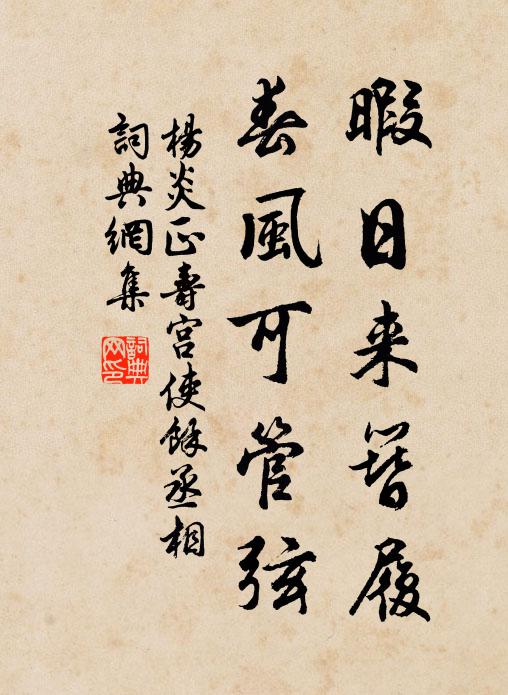 暇日来簪履
春風可管弦
楊炎正壽宮使餘丞相
詞典網集
詞典網印